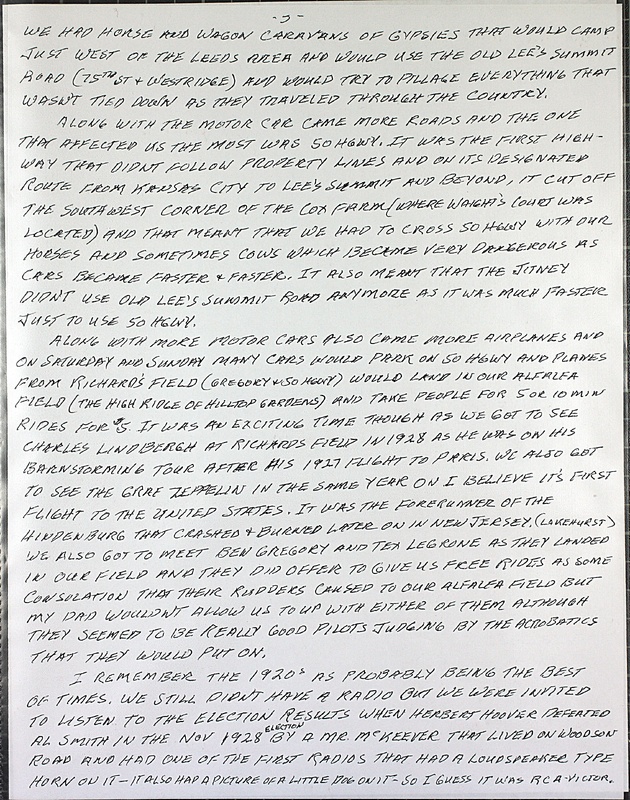 -3-
WE HAD HORSE AND WAGON CARAVANS OF GYPSIES THAT WOULD CAMP
JUST WEST OF THE LEEDS AREA AND WOULD USE THE OLD LEE'S SUMMIT
ROAD (75TH ST & WESTRIDGE) AND WOULD TRY TO PILLAGE EVERYTHING THAT
WASN'T TIED DOWN AS THEY TRAVELED THROUGH THE COUNTRY.
ALONG WITH THE MOTOR CAR CAME MORE ROADS AND THE ONE
THAT AFFECTED US THE MOST WAS 50 HGWY. IT WAS THE FIRST HIGH-
WAY THAT DIDNT FOLLOW PROPERTY LINES AND ON ITS DESIGNATED
ROUTE FROM KANSAS CITY TO LEE'S SUMMIT AND BEYOND, IT CUT OFF
THE SOUTHWEST CORNER OF THE COX FARM (WHERE WAIGH'S COURT WAS
LOCATED) AND THAT MEANT THAT WE HAD TO CROSS 50 HGWY WITH OUR
HORSES AND SOMETIMES COWS WHICH BECAME VERY DANGEROUS AS
CARS BECAME FASTER & FASTER. IT ALSO MEANT THAT THE JITNEY
DIDN'T USE OLD LEE'S SUMMIT ROAD ANYMORE AS IT WAS MUCH FASTER
JUST TO USE 50 HGWY.
ALONG WITH MORE MOTOR CARS ALSO CAME MORE AIRPLANES AND
ON SATURDAY AND SUNDAY MANY CARS WOULD PARK ON 50 HGWY AND PLANES
FROM RICHARDS FIELD (GREGORY & 50 HGWY) WOULD LAND IN OUR ALFALFA
FIELD (THE HIGH RIDGE OF HILLTOP GARDENS) AND TAKE PEOPLE FOR 5 OR 10 MIN
RIDES FOR $5. IT WAS AN EXCITING TIME THOUGH AS WE GOT TO SEE
CHARLES LINDBERGH AT RICHARDS FIELD IN 1928 AS HE WAS ON HIS
BARNSTORMING TOUR AFTER HIS 1927 FLIGHT TO PARIS. WE ALSO GOT
TO SEE THE GRAF ZEPPELIN IN THE SAME YEAR ON I BELIEVE IT'S FIRST
FLIGHT TO THE UNITED STATES. IT WAS THE FORERUNNER OF THE
HINDENBURG THAT CRASHED & BURNED LATER ON IN NEW JERSEY. (LAKEHURST)
WE ALSO GOT TO MEET BEN GREGORY AND TEX LEGRONE AS THEY LANDED
IN OUR FIELD AND THEY DID OFFER TO GIVE US FREE RIDES AS SOME
CONSOLATION THAT THEIR RUDDERS CAUSED TO OUR ALFALFA FIELD BUT
MY DAD WOULDN'T ALLOW US TO UP WITH EITHER OF THEM ALTHOUGH
THEY SEEMED TO BE REALLY GOOD PILOTS JUDGING BY THE ACROBATICS
THAT THEY WOULD PUT ON.
I REMEMBER THE 1920s AS PROBABLY BEING THE BEST
OF TIMES. WE STILL DIDN'T HAVE A RADIO BUT WE WERE INVITED
TO LISTEN TO THE ELECTION RESULTS WHEN HERBERT HOOVER DEFEATED
AL SMITH IN THE NOV 1928 ELECTION BY A MR. MCKEEVER THAT LIVED ON WOODSON
ROAD AND HAD ONE OF THE FIRST RADIOS THAT HAD A LOUDSPEAKER TYPE
HORN ON IT - IT ALSO HAD A PICTURE OF A LITTLE DOG ON IT - SO I GUESS IT WAS RCA-VICTOR.